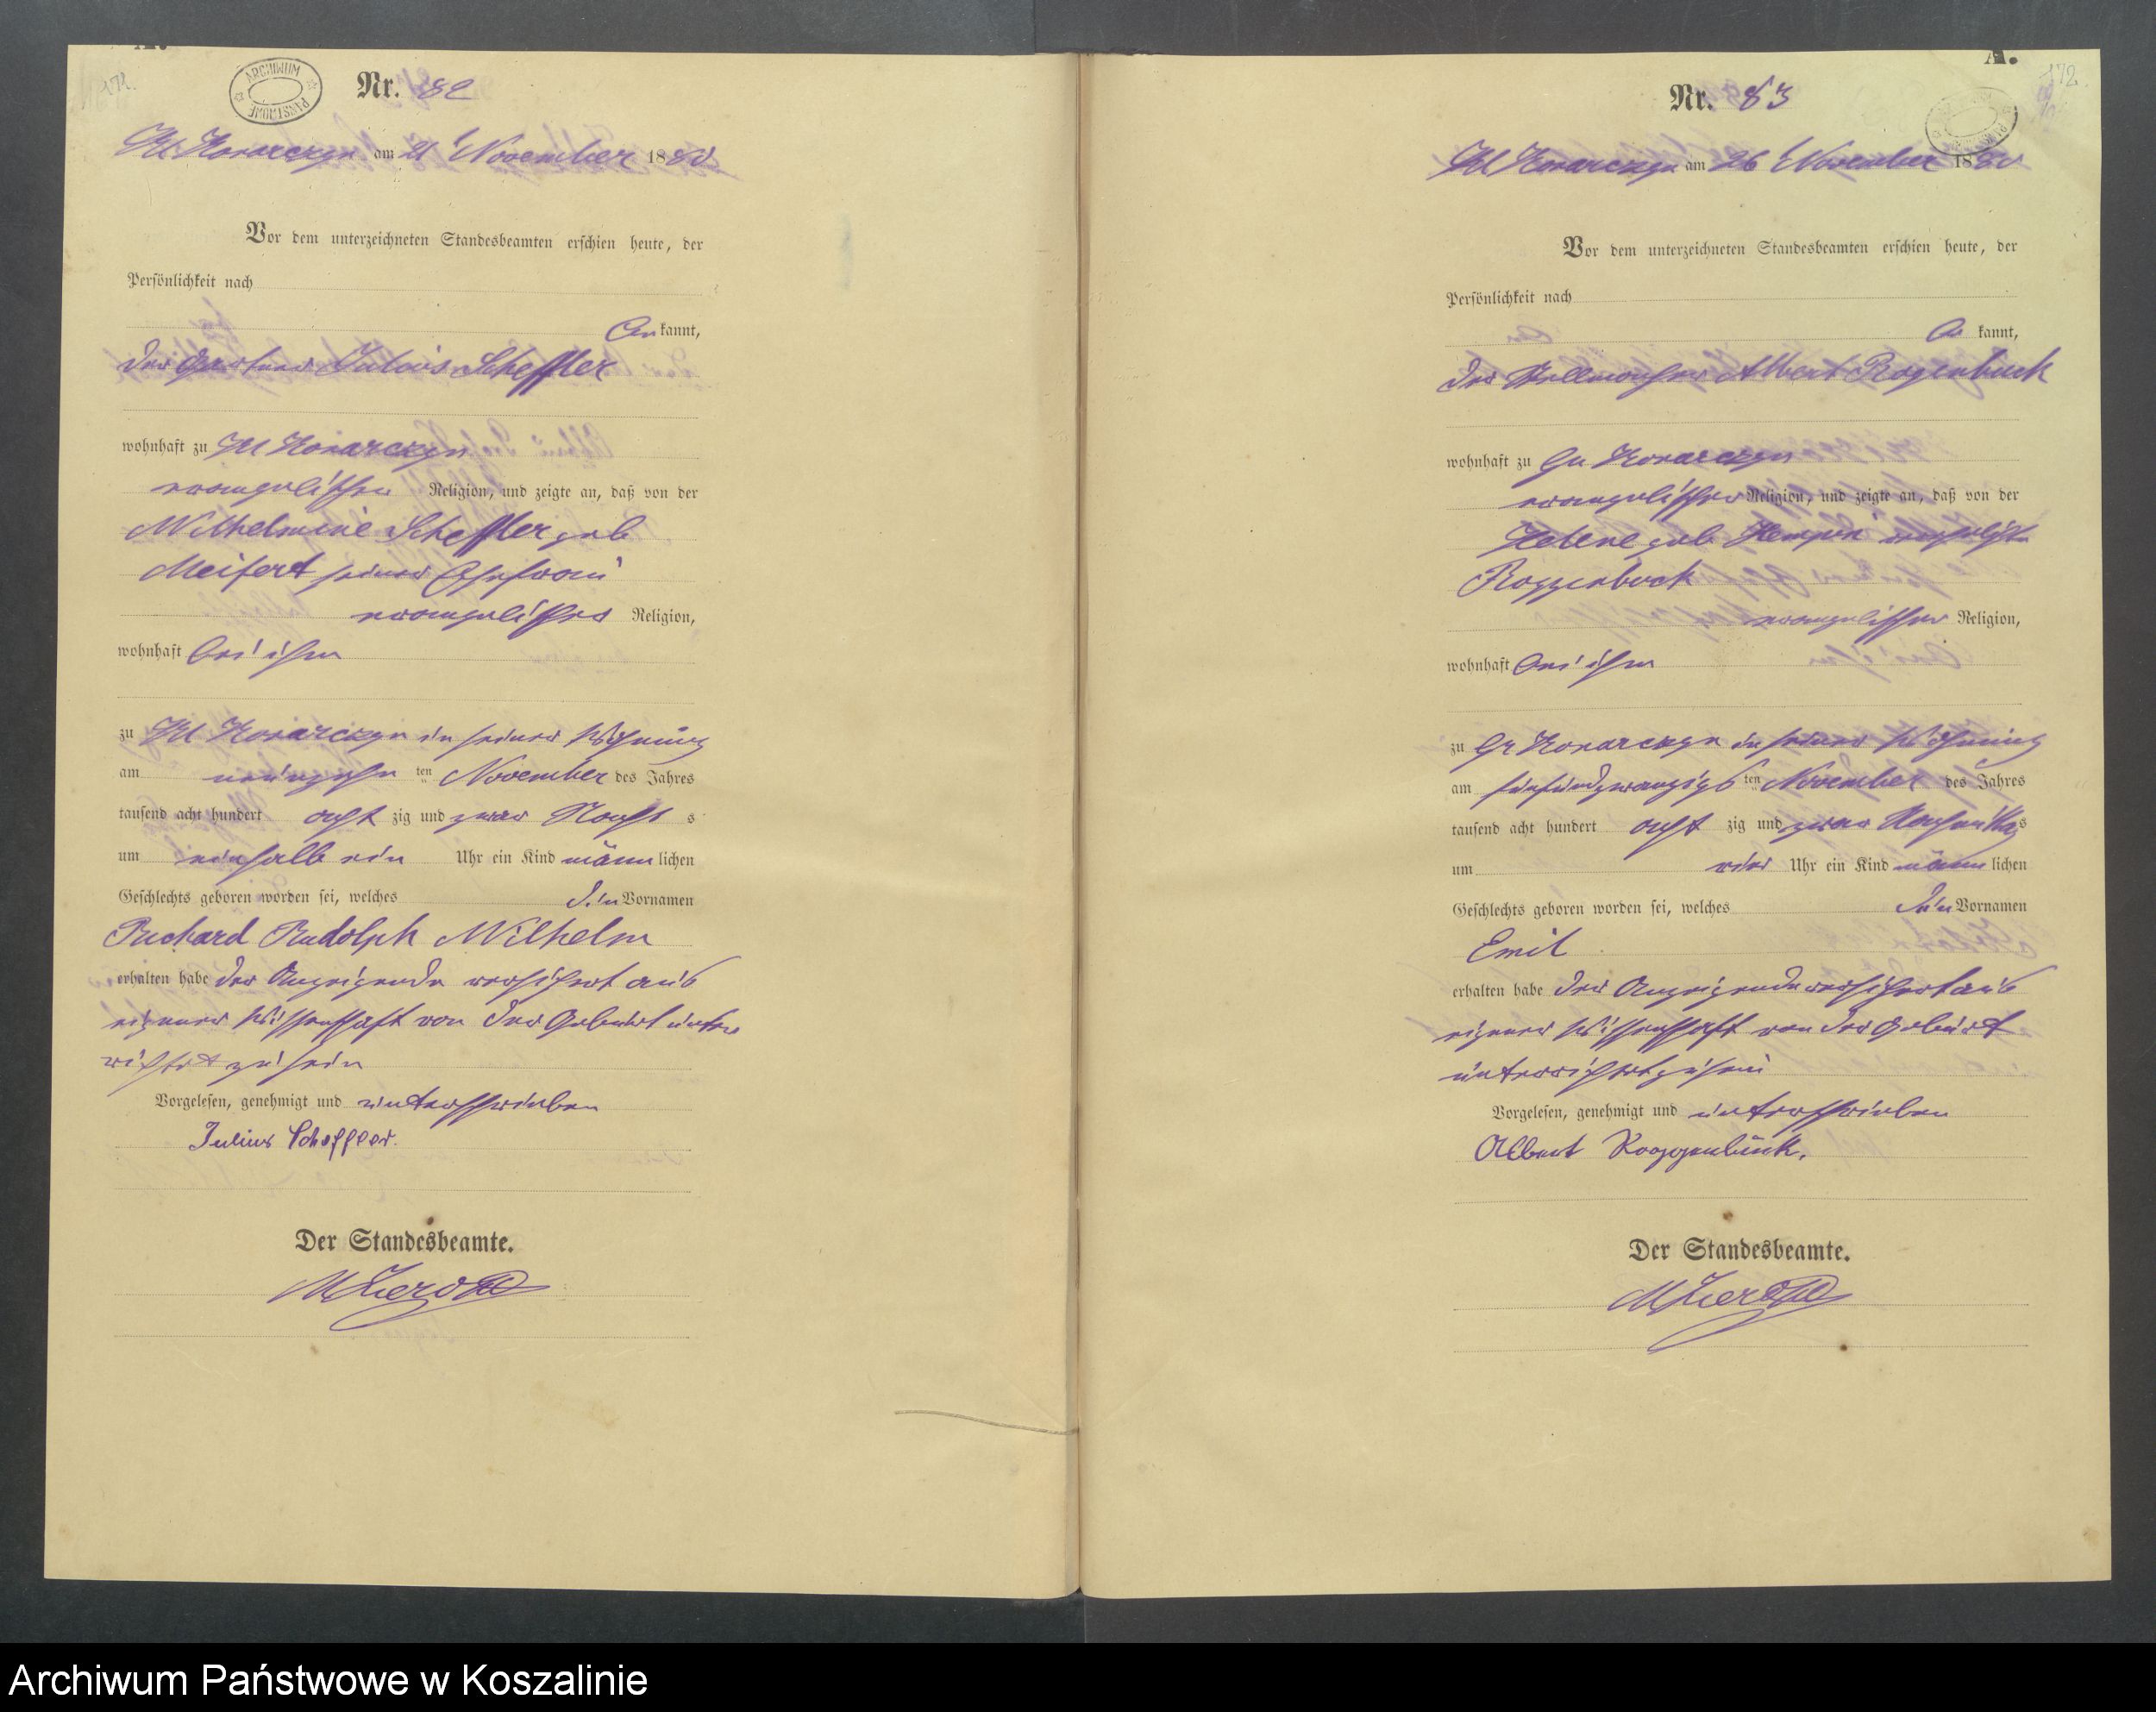 171.
ARCHIWUM PAŃSTWOWE
Nr. 82
Kl Konarczyn am 21 November 1880
Vor dem unterzeichneten Standesbeamten erschien heute, der
Persönlichkeit nach
be kannt,
der Gärtner Julius Scheffler
wohnhaft zu Kl Konarczyn
evangelischer Religion, und zeigte an, daß von der
Wilhelmine Scheffler geb
Meifert seiner Ehefrau
evangelischer Religion,
wohnhaft bei ihm
zu Kl Konarczyn in seiner Wohnung
am neunzehn ten November des Jahres
tausend acht hundert acht zig und zwar Nachts
um einhalb ein Uhr ein Kind männlichen
Geschlechts geboren worden sei, welches die Vornamen
Richard Rudolph Wilhelm
erhalten habe der Anzeigende versichert aus
eigener Wissenschaft von der Geburt unter
richtet zu sein
Vorgelesen, genehmigt und unterschrieben
Julius Scheffler.
Der Standesbeamte.
A.
172.
Nr. 83
Kl Konarczyn am 26 November 1880
Vor dem unterzeichneten Standesbeamten erschien heute, der
Persönlichkeit nach
be kannt,
der Albert Rogenbuck
wohnhaft zu Gr Konarczyn
evangelischer Religion, und zeigte an, daß von der
Helene geb
Roggenbuck
evangelischer Religion,
wohnhaft bei ihm
zu Gr Konarczyn in seiner Wohnung
am fünfundzwanzigs ten November des Jahres
tausend acht hundert acht zig und zwar Nachmittags
um vier Uhr ein Kind männlichen
Geschlechts geboren worden sei, welches den Vornamen
Emil
erhalten habe der Anzeigende versichert aus
eigener Wissenschaft von der Geburt
unterrichtet zu sein
Vorgelesen, genehmigt und unterschrieben
Albert Roggenbuck.
Der Standesbeamte.
Archiwum Państwowe w Koszalinie